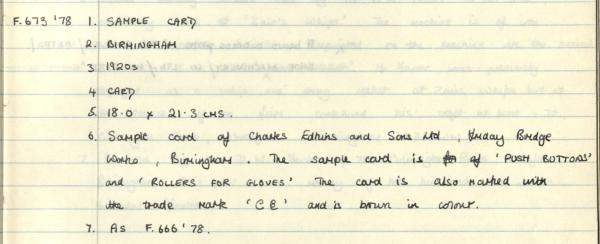 F.673 '78 1. SAMPLE CARD
2. BIRMINGHAM
3 1920s
4 CARD
5. 18.0 x 21.3 CMS.
6. Sample card of Charles Edkins and Sons Ltd, Bridge
Works, Birmingham. The sample card is of 'PUSH BUTTONS'
and 'ROLLERS FOR GLOVES' The card is also marked with
the trade mark 'C E' and is brown in colour.
7. As F.666 '78.